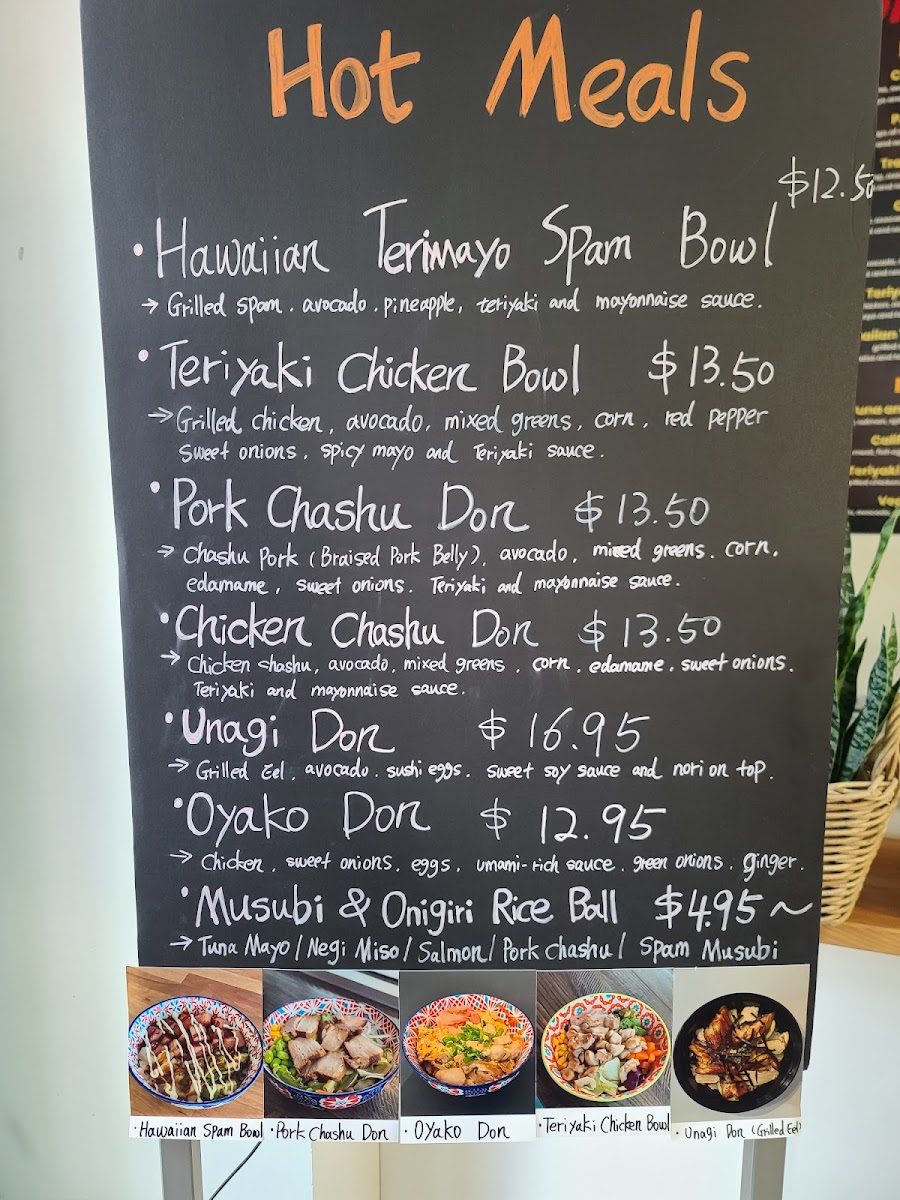 Hot Meals
$12.50
· Hawaiian Terimayo Spam Bowl
→ Grilled spam. avocado. pineapple, teriyaki and mayonnaise sauce.
· Teriyaki Chicken Bowl $13.50
→ Grilled chicken, avocado, mixed greens, corn, red pepper
sweet onions, spicy mayo and Teriyaki sauce.
· Pork Chashu Don $13.50
→ Chashu Pork (Braised Pork Belly), avocado, mixed greens. corn.
edamame, sweet onions. Teriyaki and mayonnaise sauce.
· Chicken Chashu Don $13.50
→ Chicken chashu, avocado, mixed greens, corn. edamame. sweet onions.
Teriyaki and mayonnaise sauce.
· Unagi Don $16.95
→ Grilled Eel. avocado. sushi eggs. sweet soy sauce and nori on top.
· Oyako Don $12.95
→ Chicken, sweet onions. eggs, umami-rich sauce. green onions. ginger.
· Musubi & Onigiri Rice Ball $4.95~
→ Tuna Mayo/Negi Miso/Salmon/Pork chashu/ Spam Musubi
· Hawaiian Spam Bowl
· Pork Chashu Don
· OYako Don
· Teriyaki Chicken Bowl
· Unagi Don (Grilled Eel)